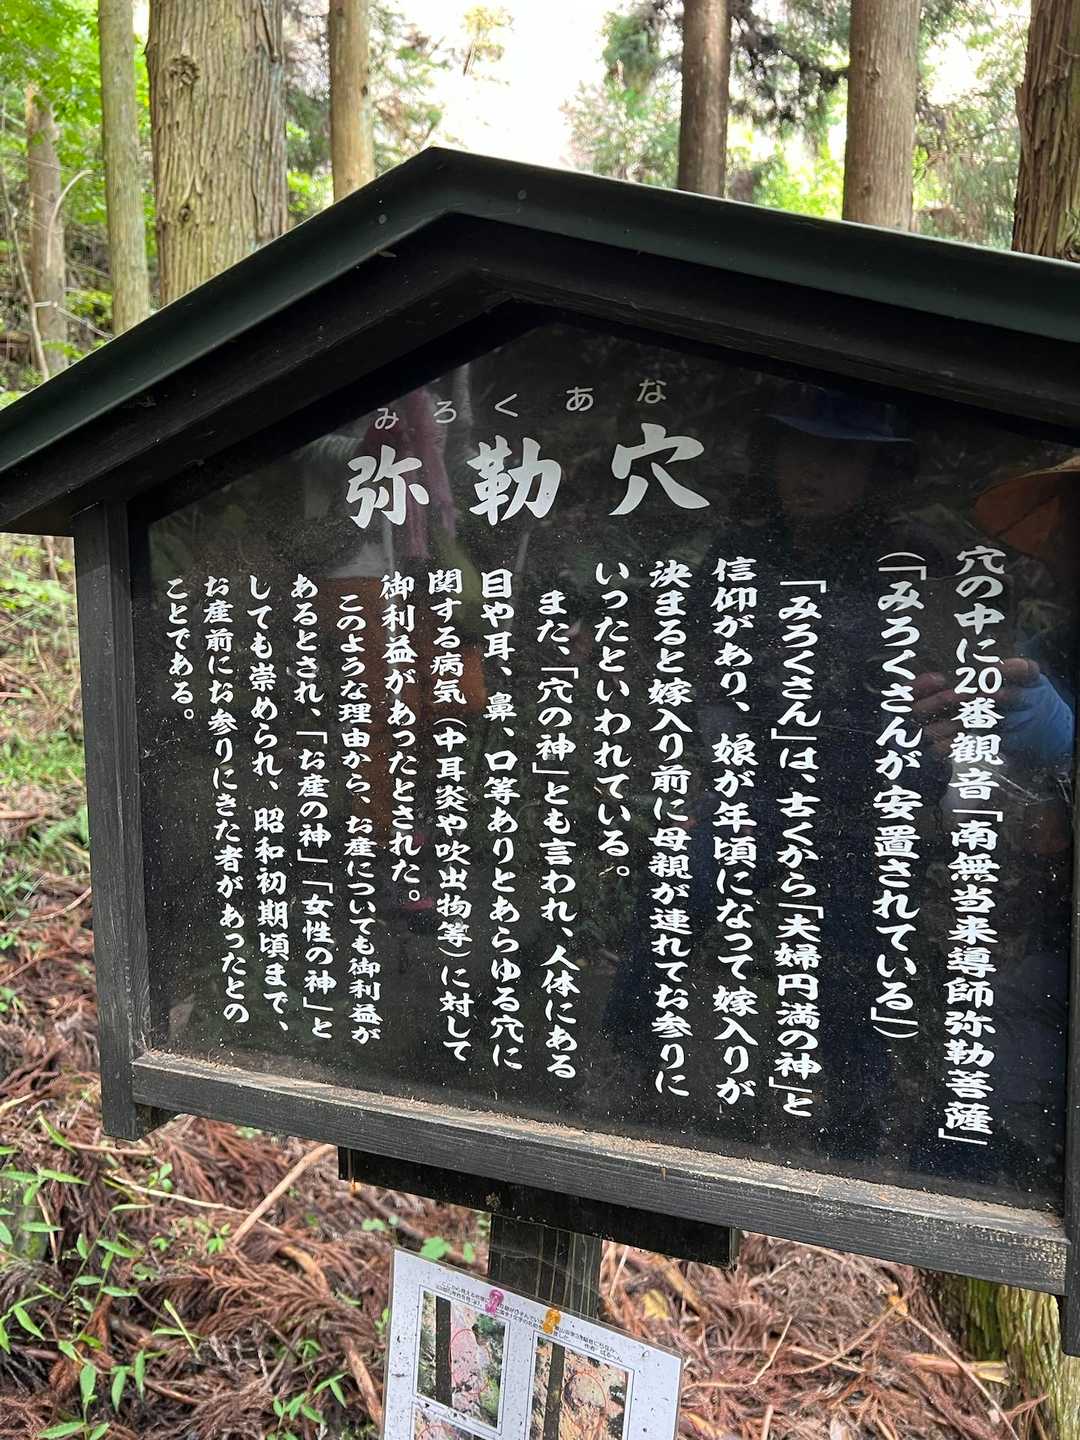 みろくあな
弥勒穴
穴の中に20番観音「南無当来導師弥勒菩薩」
（「みろくさんが安置されている」）
「みろくさん」は、古くから「夫婦円満の神」と
信仰があり、娘が年頃になって嫁入りが
決まると嫁入り前に母親が連れてお参りに
いったといわれている。
また、「穴の神」とも言われ、人体にある
目や耳、鼻、口等ありとあらゆる穴に
関する病気（中耳炎や吹出物等）に対して
御利益があったとされた。
このような理由から、お産についても御利益が
あるとされ、「お産の神」「女性の神」と
しても崇められ、昭和初期頃まで、
お産前にお参りにきた者があったとの
ことである。